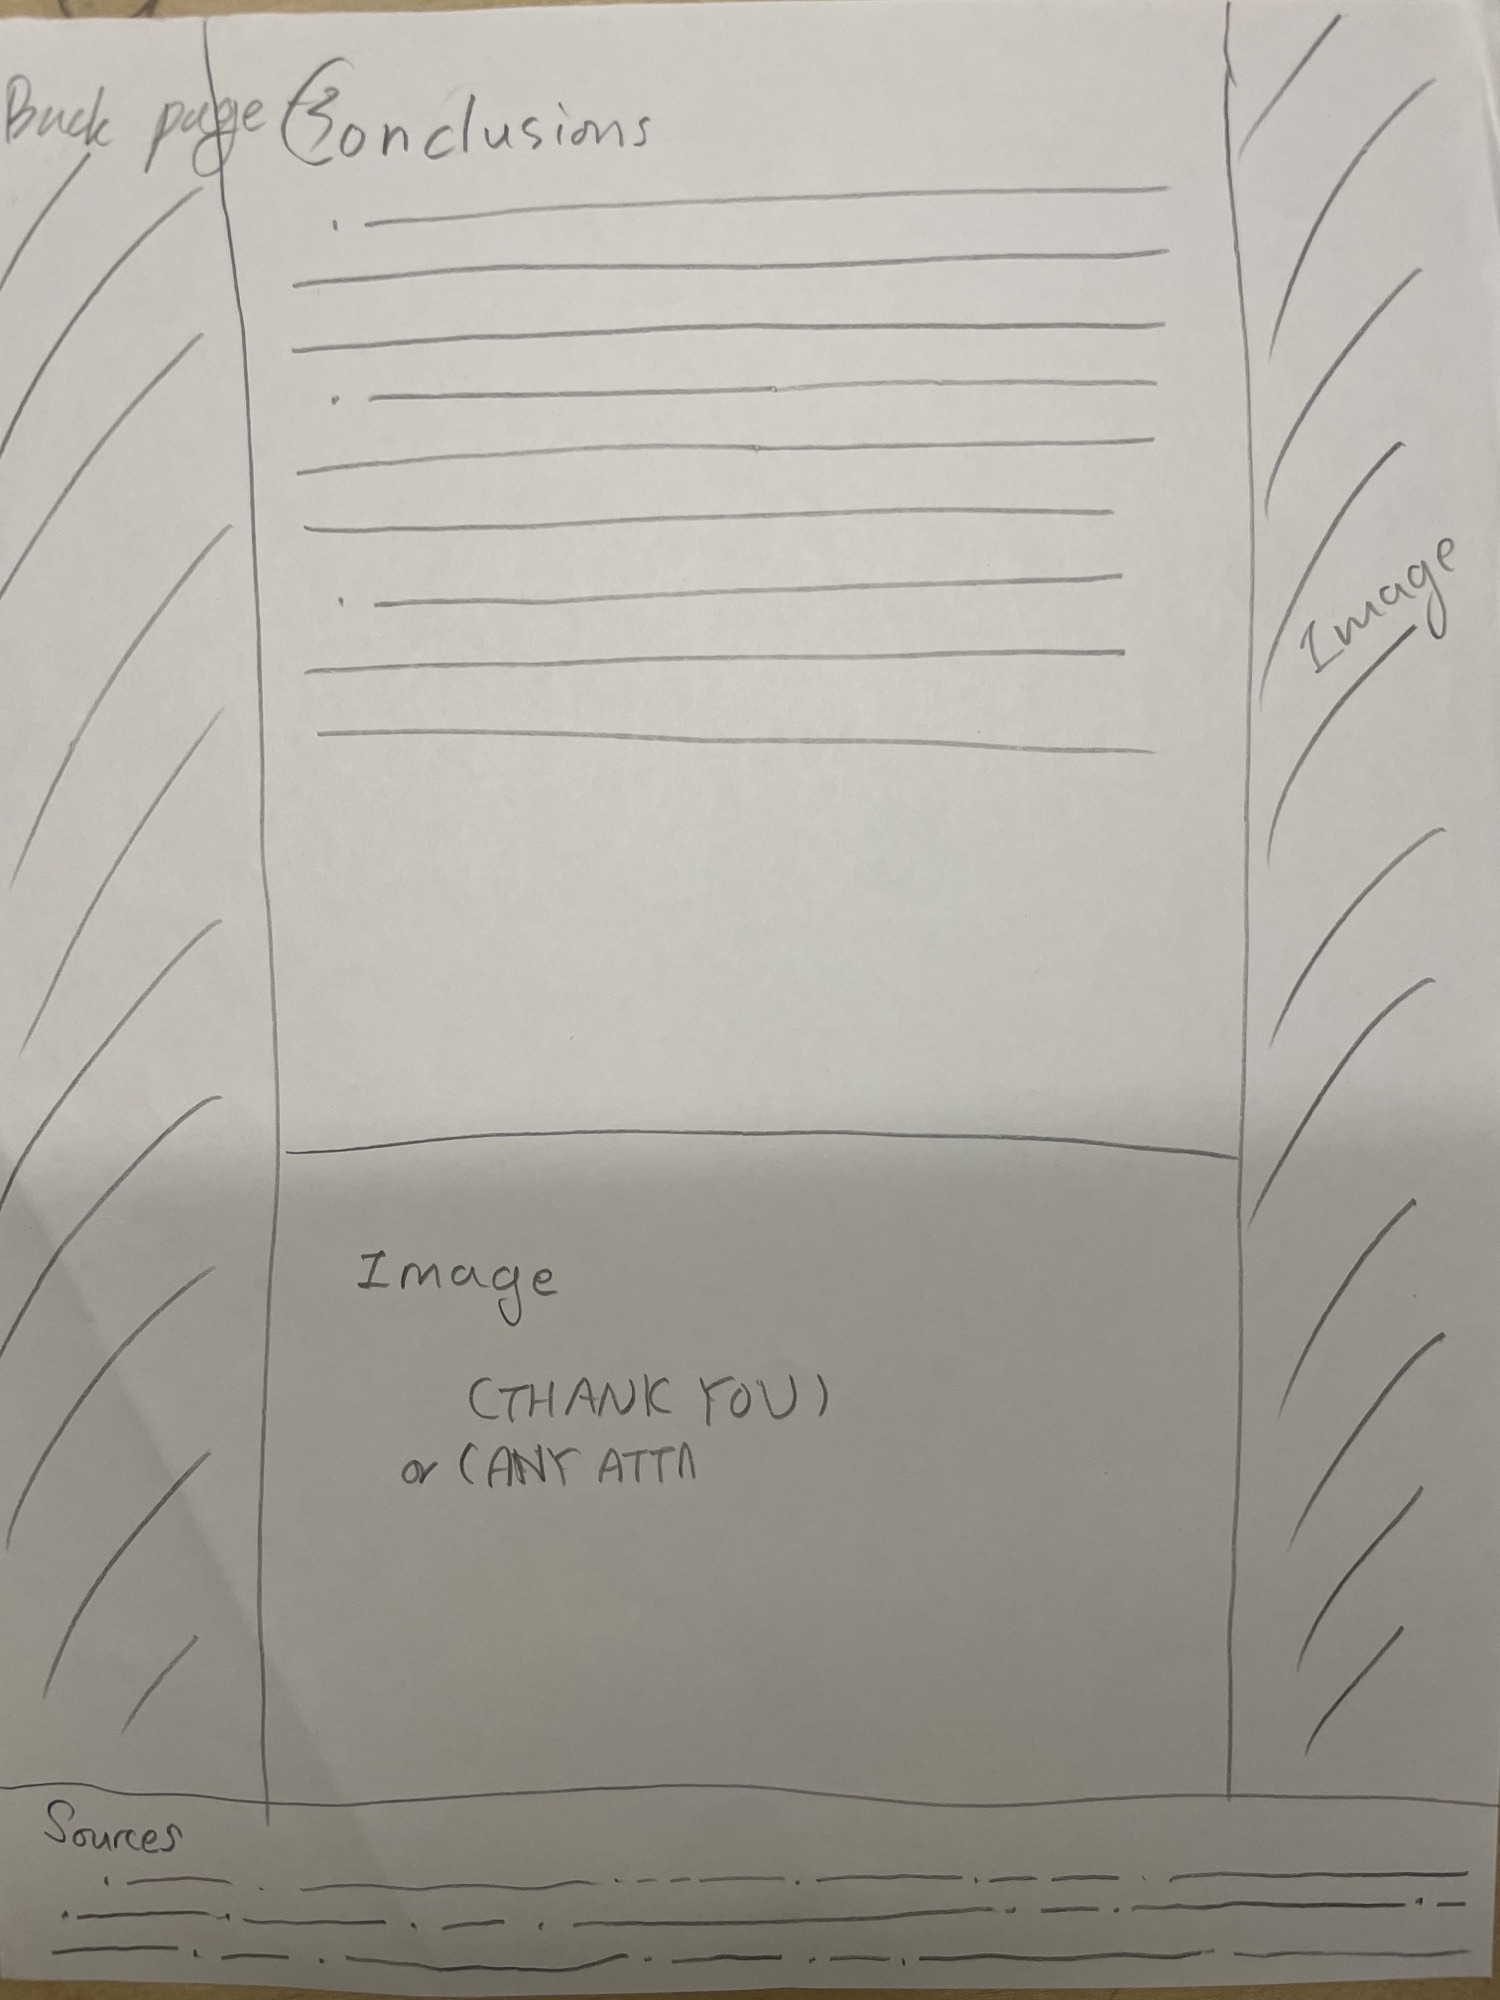 Back page
Conclusions
Image
Image
(THANK YOU)
or (ANY ATTA
Sources